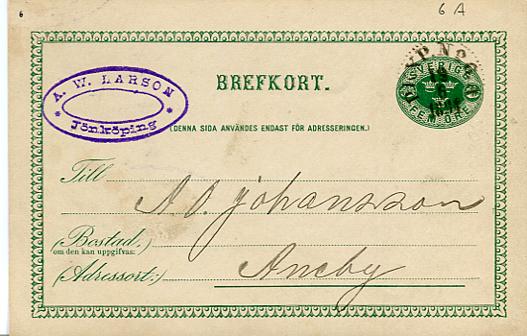 6
6 A
A. W. LARSON
Jönköping
BREFKORT.
SVERIGE
FEM ÖRE
(DENNA SIDA ANVÄNDES ENDAST FÖR ADRESSERINGEN.)
Till A. O. Johansson
(Bostad,
om den kan uppgifvas:)
(Adressort:) Aneby